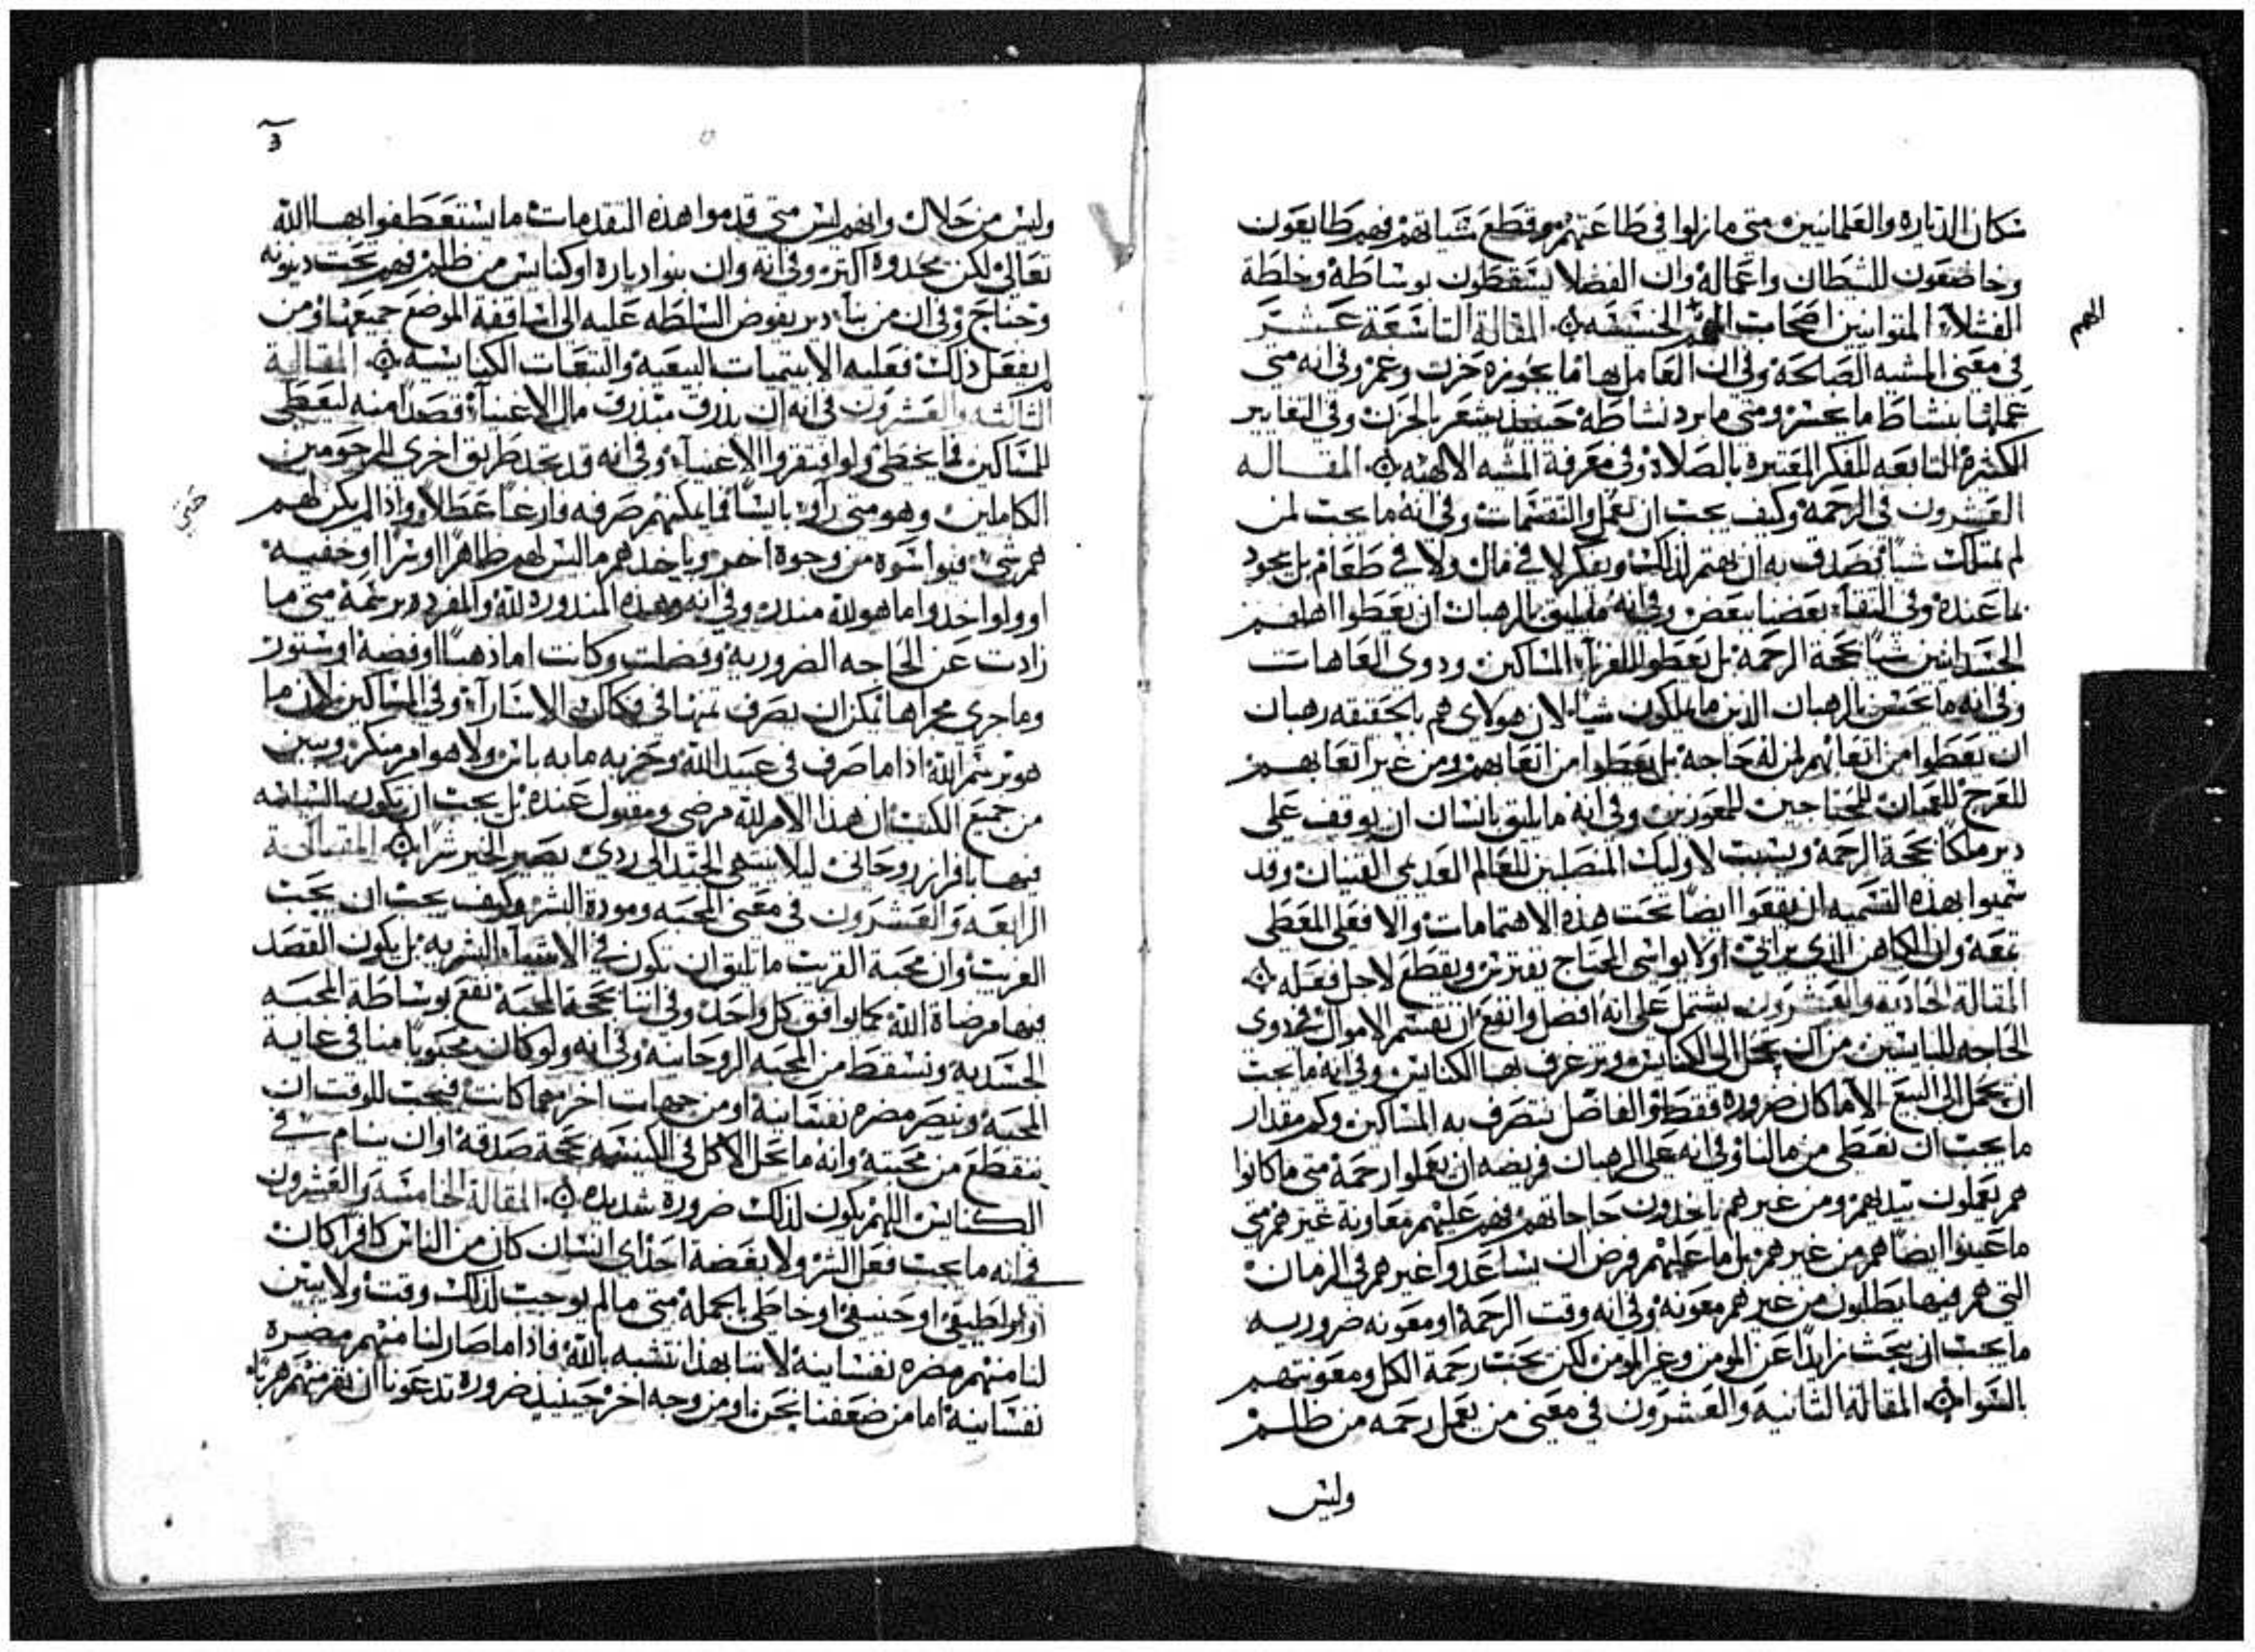 سكان الدياره والعلمانيين متى ما زلوا في طاعتهم وقطع مشياتهم فهم طايعون
وخاضعون للشيطان واعماله وان الفضلا يسقطون بوساطة وخلطة
الفشلاء المتوانيين اصحاب الهمم الخسيسه ۞ المقالة التاسعة عشر
الهمم
في معنى المشيه الصالحة وفي ان العامل بها ما يحوزه حزن وغم وفي انه متى
عملها بنشاط ما يخسر ومتى ما برد نشاطه حينيذ يشعر بالحزن وفي التغايير
الكثيرة التابعه للفكر المعتبره بالصلاة وفي معرفة المشيه الالهيه ۞ المقاله
العشرون في الرحمة وكيف يجب ان تعمل والتقسمات وفي انه ما يجب لمن
لم يمتلك شياً فصدق به ان يهتم لذلك ويفكر لا في مال ولا في طعام بل يجود
بما عنده وفي التقاء بعضنا ببعض وفي انه ما يليق بالرهبان ان يعطوا اهلهم
الجسدانيين شياً بحجة الرحمة بل يعطوا للغرباء المساكين ودوى العاهات
وفي انه ما يحسن بالرهبان الذين ما يملكون شياء لان هولاى هم بالحقيقه رهبان
ان يعطوا من اتعابهم لمن له حاجه بل يعطوا من اتعابهم ومن غير اتعابهم
للعرج للعميان للمحتاجين للمعوزين وفي انه ما يليق بانسان ان يوقف على
دير ملكاً بحجة الرحمة وبسبب لاوليك المتصلين للعالم العديمى القنيان وقد
سميوا بهذه التسميه ان يقعوا ايضاً تحت هذه الاهتمامات والا فعلى المعطى
تبعه وان الكاهن الذي يرابي اولا يواسي المحتاج يفترس ويقطع لاجل فعله ۞
المقالة الحاديه والعشرون يشتمل على انه افضل وانفع ان تقسم الاموال لدوى
الحاجه البايسين من ان تحمل الى الكنايس وتزخرف بها الكنايس وفي انه ما يجب
ان يحمل الى البيع الا ما كان ضرورة فقط والفاضل نتصرف به المساكين وكم مقدار
ما يجب ان نعطى من مالنا وفي انه على الرهبان فريضه ان يعملوا رحمة متى ما كانوا
هم يعملون بيديهم ومن غيرهم ياخدون حاجاتهم فهم عليهم معاونة غيرهم متى
ما عينوا ايضاً هم من غيرهم بل ما عليهم فرض ان يساعدوا غيرهم في الزمان
التي هم فيها يطلبون من غيرهم معونة وفي انه وقت الرحمة او معونه ضروريه
ما يجب ان يبحث زايداً عن المومن وغير المومن لكن يجب رحمة الكل ومعونتهم
بالسوا ۞ المقالة الثانية والعشرون في معنى من يعمل رحمه من ظلم
وليس
3
وليس من حلال وانهم ليس متى قدموا هذه التقدمات ما يستعطفوا بها الله
تعالى لكن يحدوه اكثر وفي انه وان بنوا دياره او كنايس من ظلم فهم تحت دينونه
وجناح وفي ان من بناء دير يفوض السلطه عليه الى اساقفة الموضع جميعها ومن
لم يفعل ذلك فعليه الابتيميات البيعية والتبعات الكنايسيه ۞ المقالة
الثالثه والعشرون في انه ان بذرق متبذرق مال الاغنياء قصداً منه ليعطي
للمساكين فما يخطئ ولو افتقروا الاغنياء وفي انه قد يجد طريق اخرى للمرحومين
الكاملين وهو متى راوا بايساً فما يمكنهم صرفه فارغاً عطلاً وواذا لم يكن لهم
هم شي فيواسوه من وجوه اخر وياخد هم ما ليس لهم ظاهراً او سراً او خفيه
او ولو اخدوا ما هو لله منذر وفي انه وهذه المندورة لله والمفرده برسمه متى ما
زادت عن الحاجه الضروريه وفضلت وكانت اما دهباً او فضه او ستور
وما جرى مجراها يمكن ان يصرف تمنها في فكاك الاسارآء وفي المساكين لان ما
هو برسم الله اذا ما صرف في عبيد الله وحزبه ما به باس ولا هو امر منكر ويبين
من جميع الكتب ان هذا الامر لله مرضي ومقبول عنده بل يجب ان يكون السياسه
فيها بافراز روحاني ليلا ينتهى الجيد الى ردى يصير الخير شراً ۞ المقالة
الرابعه والعشرون في معنى المحبه ومودة البشر وكيف يجب ان يحب
القريب وان محبة القريب ما تليق ان تكون في الاشياء البشريه بل يكون القصد
فيها مرضاة الله بما يوافق كل واحد وفي اننا بحجة المحبة نقع بوساطة المحبه
الجسديه ونسقط من المحبه الروحانيه وفي انه ولو كان محبوباً منا في غاية
المحبة ونبصر مضره نفسانية او من جهات اخر مهما كانت فيجب للوقت ان
ننقطع من محبته وانه ما يحل الاكل في الكنيسه بحجة صدقة او ان ينام في
الكنايس اللهم يكون لذلك ضروره شديده ۞ المقالة الخامسه والعشرون
في انه ما يجب فعل الشر ولا بغضة احد اى انسان كان من الناس كافراً كان
او اراطيقي او حنيفي او خاطى بالجملة متى ما لم يوجب لذلك وقت ولا يبين
لنا منهم مضره نفسانية لاننا بهذا نتشبه بالله فاذا ما صار لنا منهم مضره
نفسانية اما من ضعفنا نحن او من وجه اخر حينيذ ضرورة تدعونا ان نفر منهم هرباً